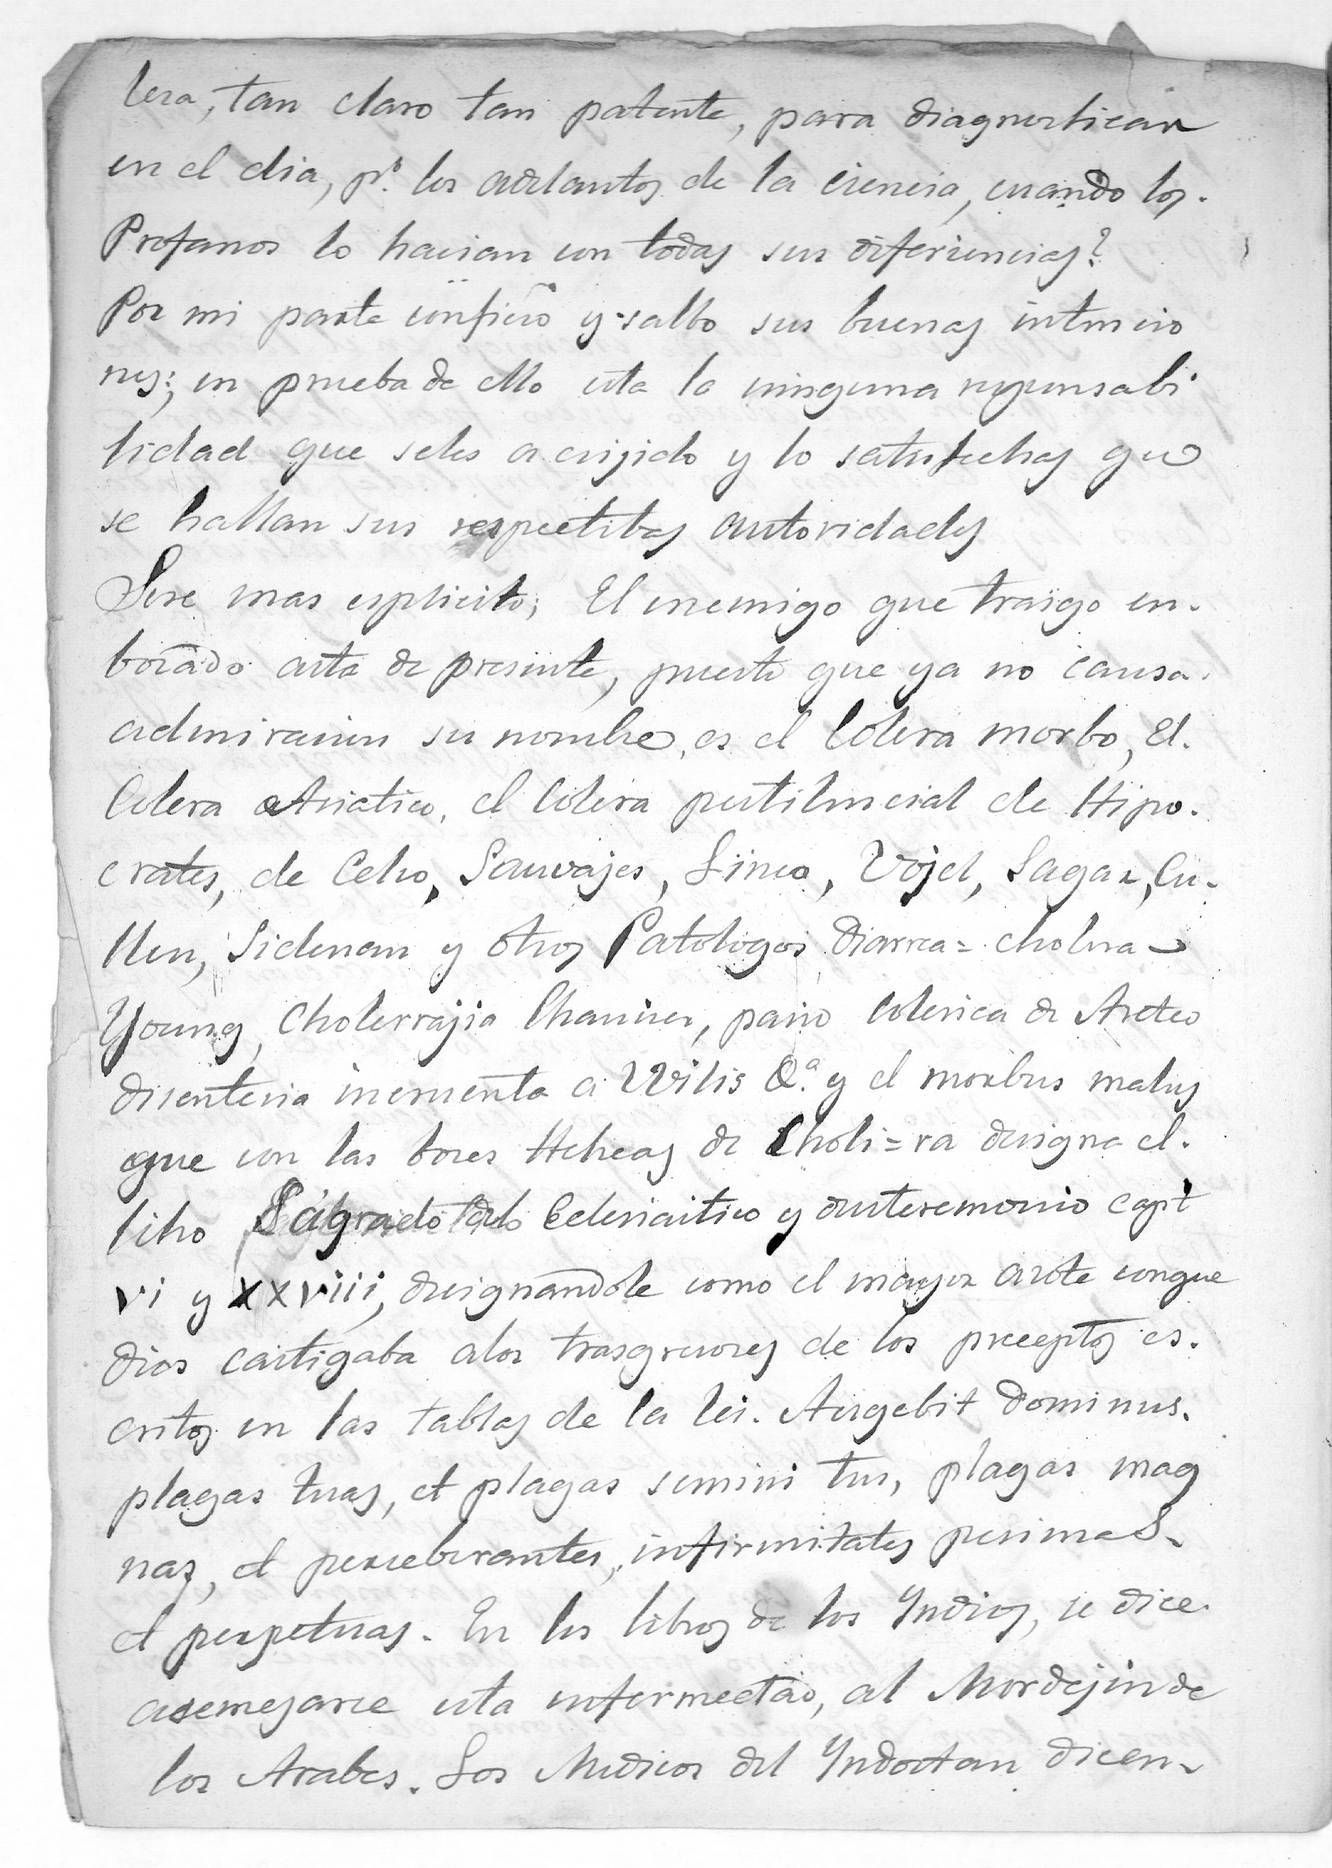 lera, tan claro tan patente, para diagnosticar
en el dia, pr. los adelantos de la ciencia, cuando los
Profanos lo hacian con todas sus diferiencias?
Por mi parte confieso y salbo sus buenas intencio
nes; en prueba de ello esta la ninguna responsabi
lidad que seles a exijido y lo satisfechas que
se hallan sus respectibas autoridades
Sere mas esplicito; El enemigo que traigo en-
bozado asta de presente, puesto que ya no causa
admiracion su nombre, es el Colera morbo, El
Colera Asiatico, el Colera pestilencial de Hipo-
crates, de Celso, Sauvajes, Lineo, Vojel, Sagar, Cu-
llen, Sidenan y otros Patologos, diarrea = cholera
Young, Cholerrajia Chaunier, pasio Colerica de Areteo
disenteria incruenta a Wilis &a. y el morbus malus
que con las boces Hebreas de Choli=ra designa el
libro Sagrado del Eclesiastico y deuteremonio capt
vi y xxviii, designandole como el mayor azote conque
dios castigaba alos trasgresores de los preceptos es-
critos en las tablas de la lei. Augebit Dominus
plagas tuas, et plagas semini tus, plagas mag
nas, et perseberantes, infirmitates pesimas
et perpetuas. En los libros de los Yndios, se dice
asemejarse esta enfermedad, al Mordejin de
los Arabes. Los Medicos del Yndostan dicen